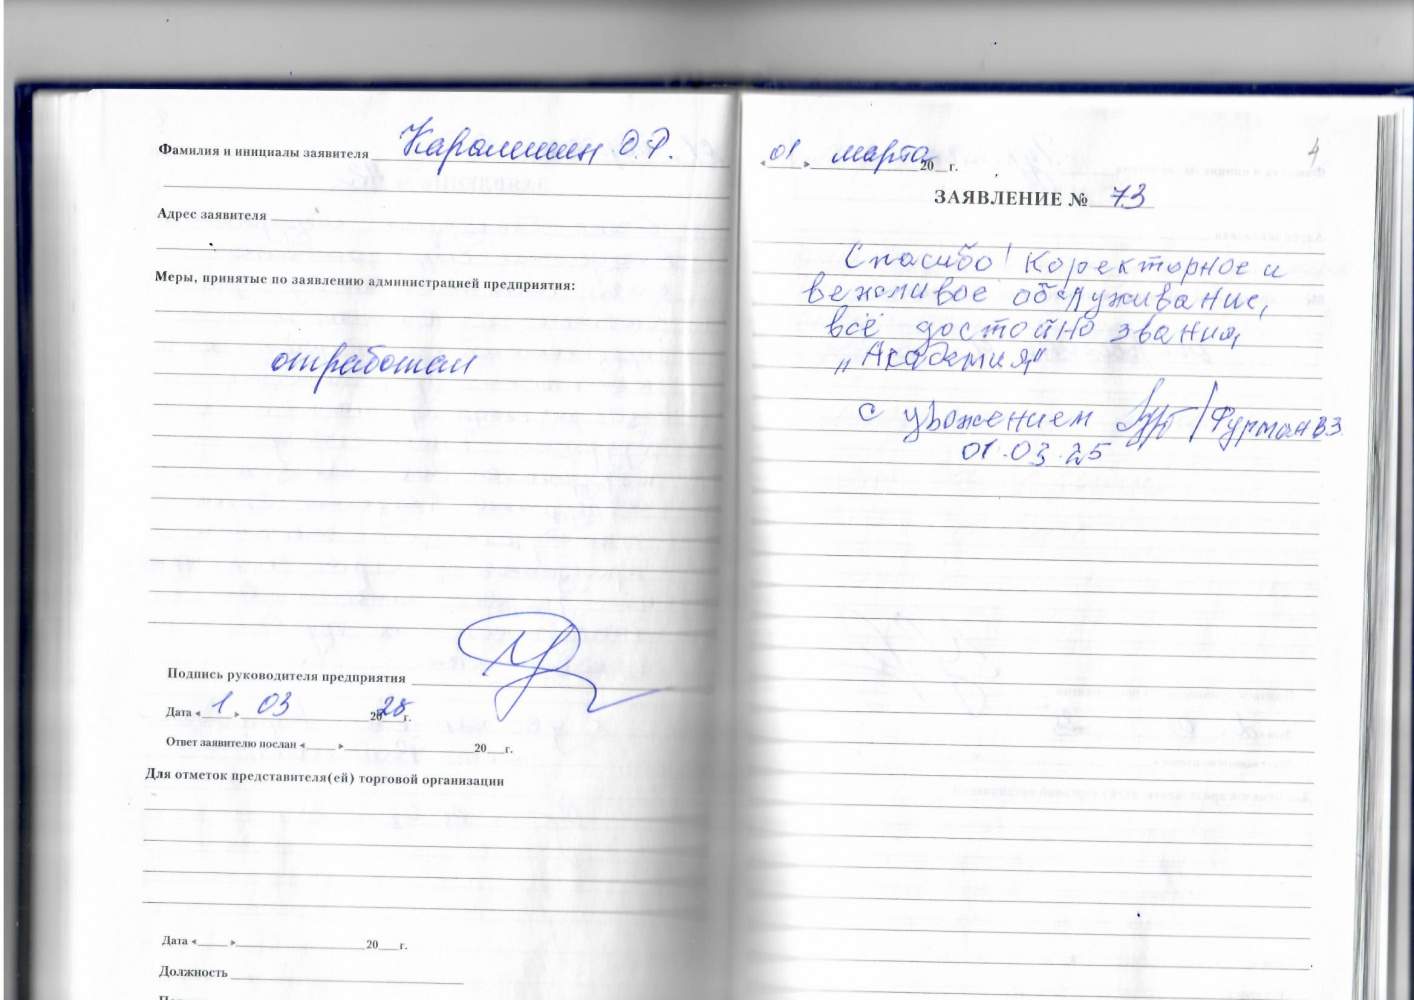 Фамилия и инициалы заявителя О.Р.
Адрес заявителя
Меры, принятые по заявлению администрацией предприятия:
отработал
Подпись руководителя предприятия
Дата « 1 » 03 2025 г.
Ответ заявителю послан « » 20 г.
Для отметок представителя(ей) торговой организации
Дата « » 20 г.
Должность
4
« 01 » марта 20 г.
ЗАЯВЛЕНИЕ № 73
Спасибо! Коректорное и
вежливое обслуживание,
всё достойно звания
„Академия“
с уважением / Фурман В.З.
01.03.25